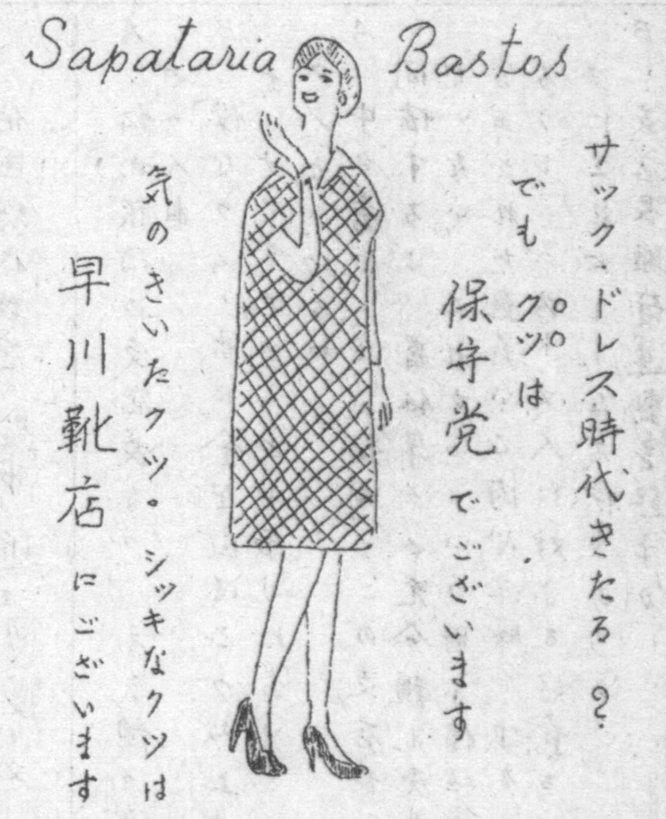 Sapataria Bastos
サックドレス時代きたる?
でも
クツは
保守党でございます
気のきいたクツ。シッキなクツは
早川靴店にございます